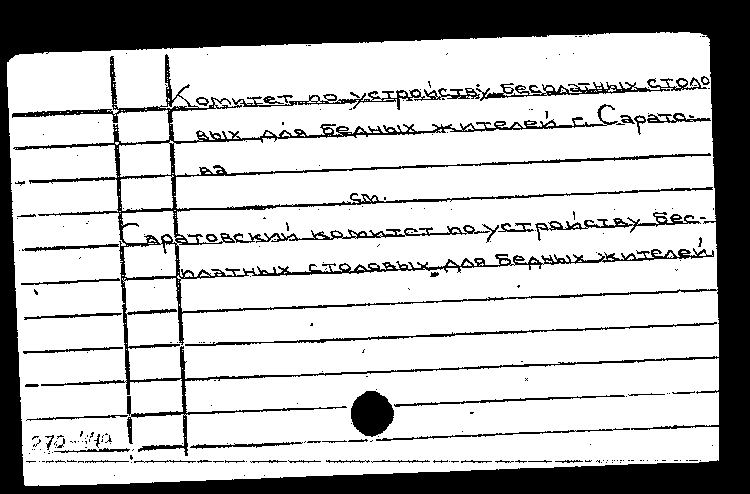 Комитет по устройству бесплатных столо
вых для бедных жителей г. Сарато-
ва
см.
Саратовский комитет по устройству бес-
платных столовых для бедных жителей
270-440